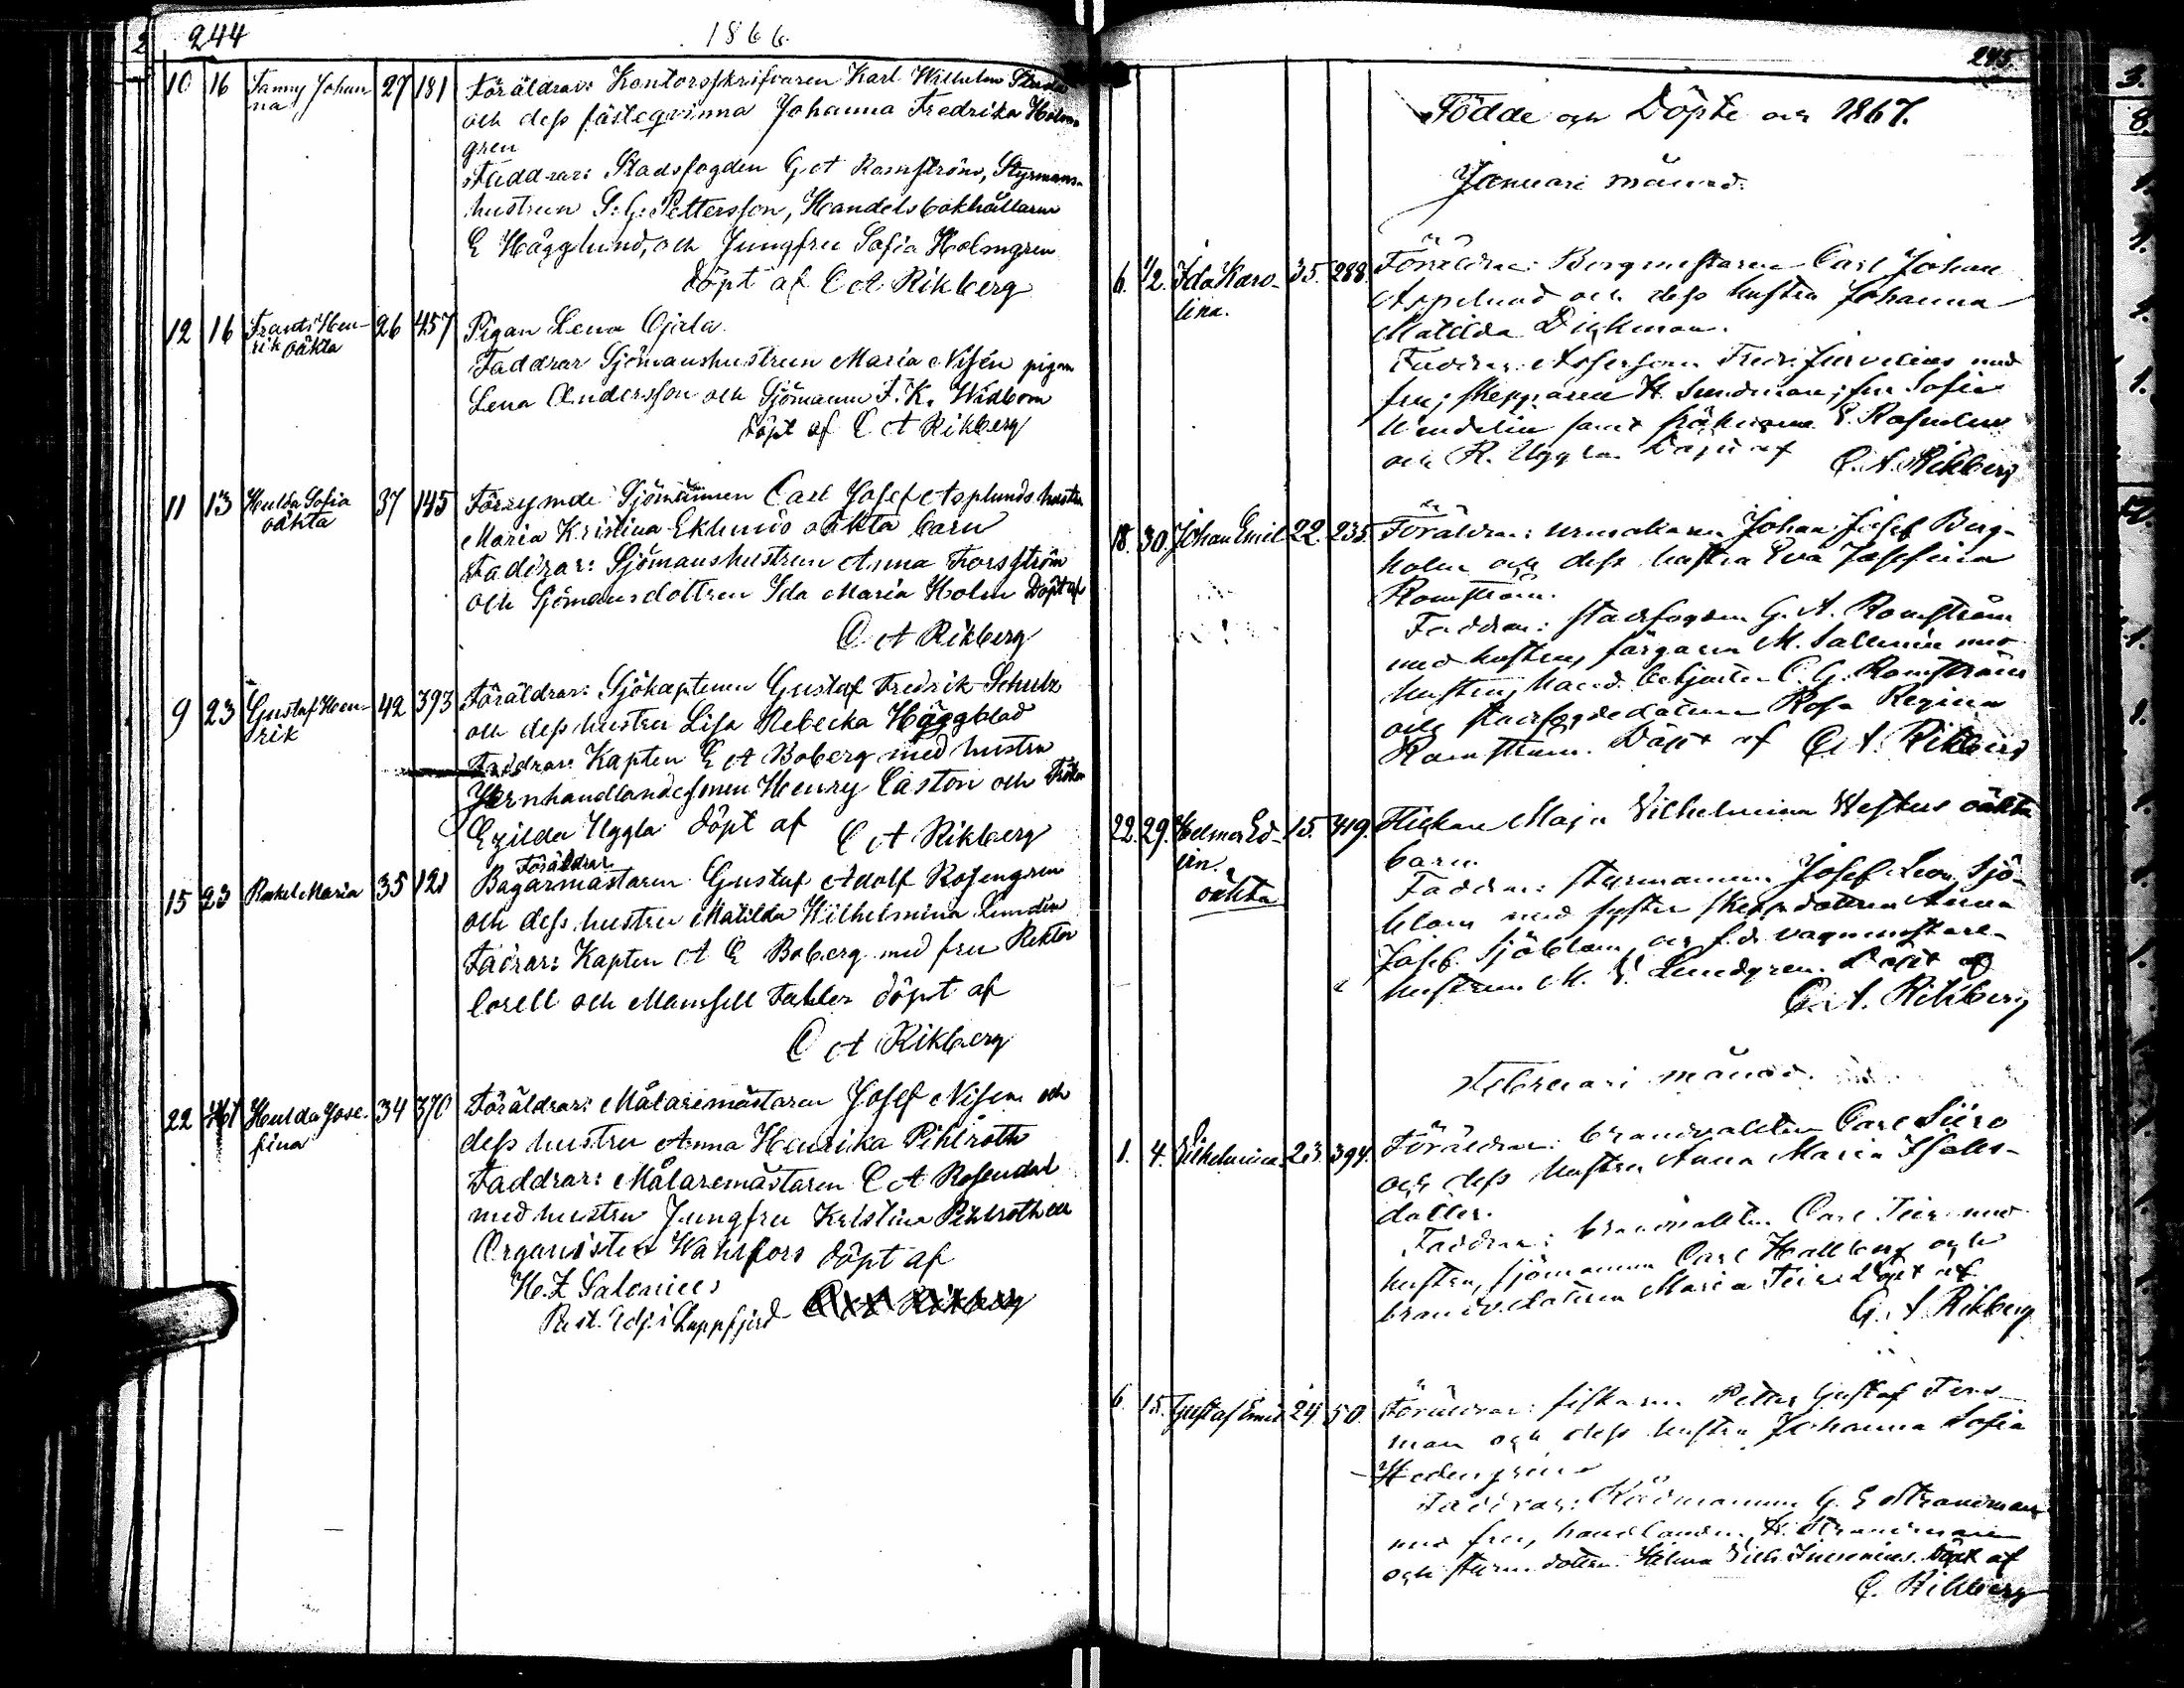 244
1866
10 16 Fanny Johan 27 181 Föräldrar: Kontorsskrifvaren Karl Wilhelm
na
och dess fästeqvinna Johanna Fredrika Holm
gren
Faddrar: Stadsfogden G. A Ramström, Styrmans-
hustrun S. G. Pettersson, Handelsbokhållaren
E Hägglund, och Jungfru Sofia Holmgren
döpt af C A Rikberg
12 16 Frans Hen- 26 457 Pigan Lena Ojala
rik oäkta
Faddrar Sjömanshustrun Maria Nisén pigan
Lena Andersson och Sjömannen F. K. Widbom
döpt af C A Rikberg
11 13 Hulda Sofia 37 145 Förrymde Sjömannen Carl Josef Asplunds hustru
oäkta
Maria Kristina Eklunds oäkta barn
Faddrar: Sjömanshustrun Anna Forsström
och Sjömansdottren Ida Maria Holm Döpt af
C A Rikberg
9 23 Gustaf Hen- 42 393 Föräldrar: Sjökaptenen Gustaf Fredrik Schulz
rik
och dess hustru Lisa Rebecka Häggblad
Faddrar: Kapten E A Boberg med hustru
Jernhandlandesonen Henry Caston och Fröken
Ezilda Uggla döpt af C A Rikberg
Föräldrar
15 23 Rakel Maria 35 121 Bagarmästaren Gustaf Adolf Rosengren
och dess hustru Matilda Wilhelmina Lundin
Fadrar: Kapten A E Boberg med fru Rektor
lorell och Mamsell Fahler döpt af
C A Rikberg
22 Hulda Jose- 34 370 Föräldrar: Målaremästaren Josef Nisén och
fina
dess hustru Anna Henrika Pihlroth
Faddrar: Målaremästaren C A Rosendal
med hustru Jungfru Kristina Pihlroth och
Organisten Wahlfors döpt af
H. Z Salonius
Past. Adj. i Lappfjerd
245.
Födde och Döpte år 1867.
Januari månad.
6. 12. Ida Karo- 35. 288. Föräldrar: Borgmästaren Carl Johan
lina.
Asplund och dess hustru Johanna
Matilda Dickman.
Faddrar: Assessoren Fredr. med
fru; skepparen H. Sundman; fru Sofia
Wendelin samt fröknarna E. Rosendal
och R. Uggla. Döpt af C. A. Rikberg
18. 30. Johan Emil 22. 235. Föräldrar: urmakaren Johan Josef Berg-
holm och dess hustru Eva Josefina
Ramström.
Faddrar: stadsfogden G. A. Ramström
med hustru, färgaren M. Sallmén med
hustru, hand. betjenten C. G. Ramström
och stadsfogdedottren Rosa Regina
Ramström. Döpt af C. A. Rikberg
22. 29. Helmer Ed- 15. 419. Flickan Maja Vilhelmina Westlus oäkta
vin.
barn.
oäkta
Faddrar: styrmannen Josef Leon. Sjö-
blom med syster skepp. dottren Anna
Josef. Sjöblom, och f. d. vagnmästare-
hustrun M. V. Lundgren. Döpt af
C. A. Rikberg
Februari månad.
1. 4. Vilhelmina. 23. 394. Föräldrar: brandvakten Carl Siiro
och dess hustru Anna Maria
dotter.
Faddrar: brandvakten Carl med
hustru, sjömannen Carl Hallberg och
brandv. dottren Maria Döpt af
C. A. Rikberg
6. 15. Gustaf Emil 24. 50. Föräldrar: fiskaren Petter Gustaf
man och dess hustru Johanna Sofia
Hedengren
Faddrar: Rådmannen G. E Strandman
med fru, handlanden H. Strandman
och dottren Hilma Vilh. Döpt af
C. Rikberg